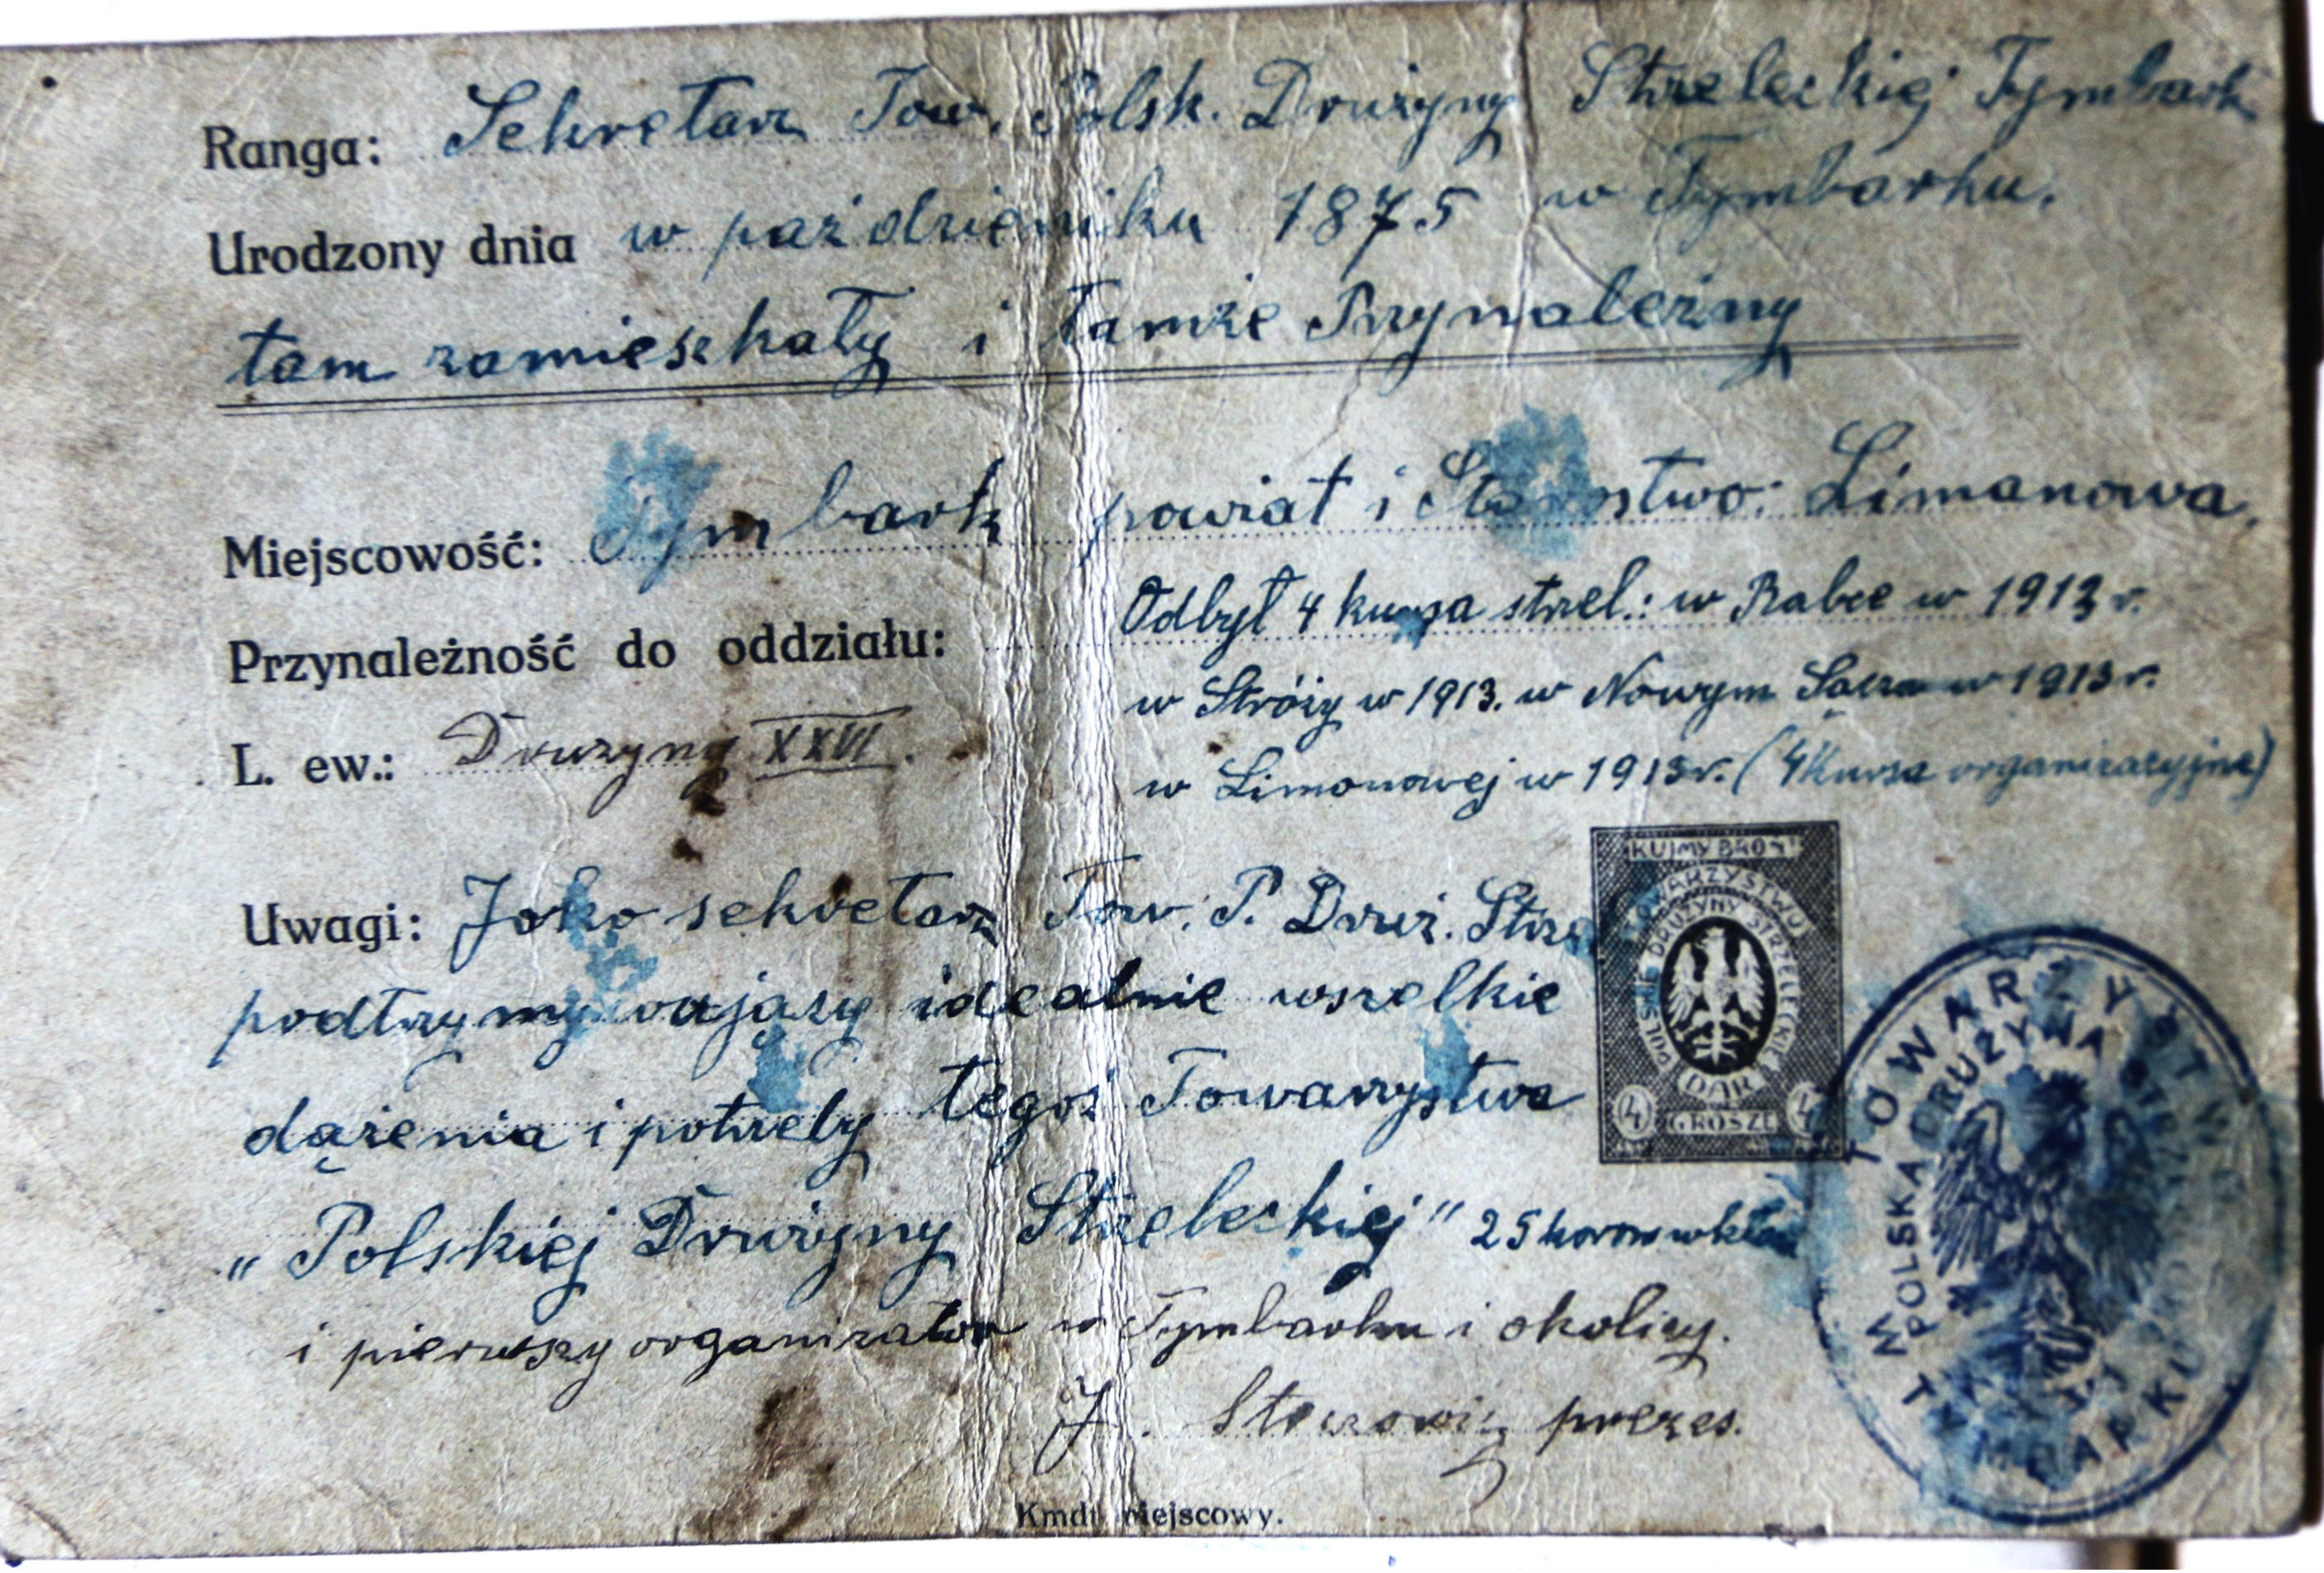 Ranga: Sekretarz Tow. Polsk. Drużyny Strzeleckiej Tymbark
Urodzony dnia w październiku 1875 w Tymbarku.
tam zamieszkały i tamże Przynależny
Miejscowość: Tymbark powiat i Starostwo: Limanowa,
Przynależność do oddziału: Odbył 4 kursa strzel.: w Rabce w 1913 r.
w Stróży w 1913. w Nowym Sączu w 1913 r.
L. ew.: Drużyny XXVI.
w Limonowej w 1913 r. (4 Kursa organizacyjne)
Uwagi: Jako sekretarz Tow. P. Druż. Strze
podtrzymywujączy idealnie wszelkie
dążenia i potrzeby tegoż Towarzystwa
„Polskiej Drużyny Strzeleckiej" 25 koron
i pierwszy organizator w Tymbarku i okolicy.
J. prezes.
Kmdt miejscowy.
KUJMY BROŃ!
TOWARZYSTWO
POLSKIE DRUŻYNY STRZELECKIE
DAR
4 GROSZE 4
TOWARZYSTWO
POLSKA DRUŻYNA
W TYMBARKU